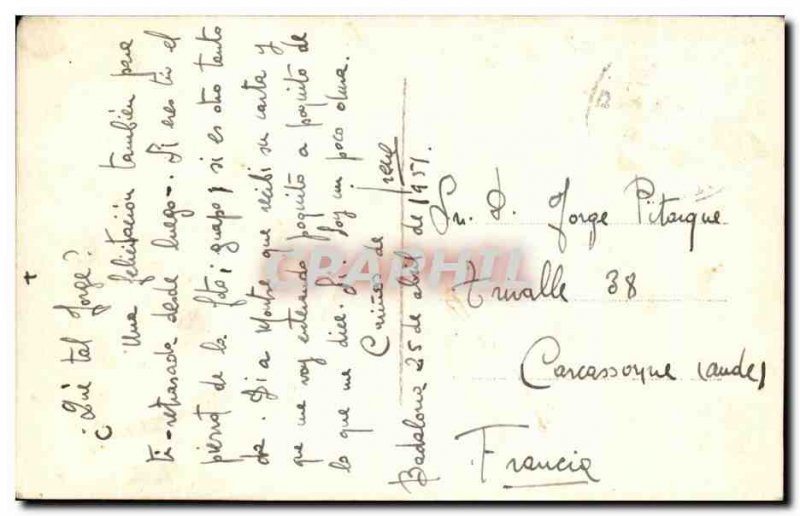 ¿Qué tal Jorge?
Una felicitación también para
ti - retrasada desde luego -. Si eres tú el
pierrot de la foto ¡guapo; si es otro tanto
da. Di a Montse que recibí su carta y
que me voy enterando poquito a poquito de
lo que me dice. Soy un poco dura.
Cariños de
Badalona 25 de abril de 1951.
Sr. D. Jorge Pitarque
Trivalle 38
Carcassoyne (aude)
Francia
CPAPHIL